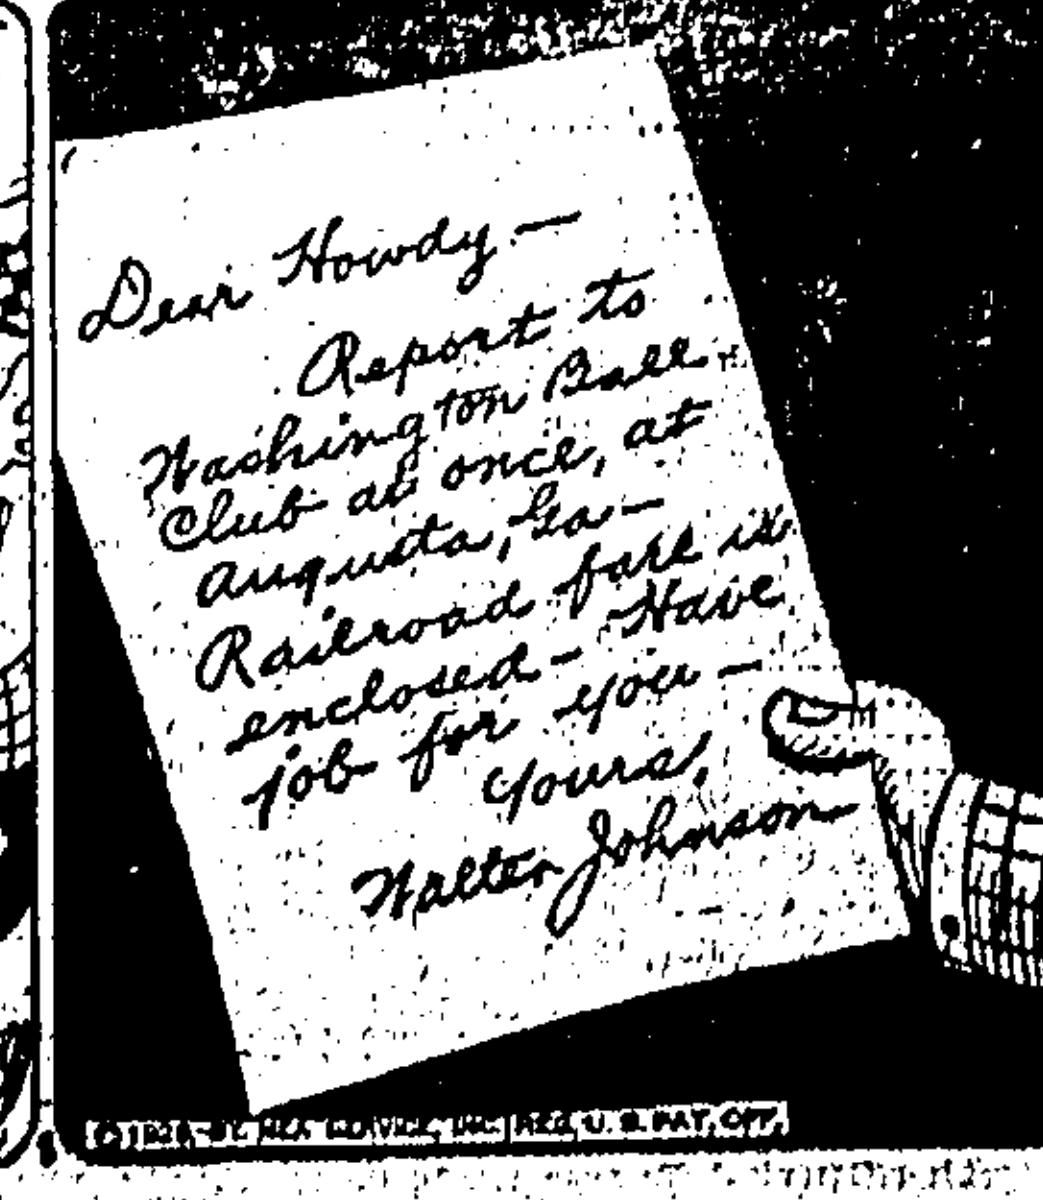 Dear Howdy —
Report to
Washington Ball
Club at once, at
Augusta, Ga —
Railroad fare is
enclosed — Have
job for you —
Yours,
Walter Johnson
© SERVICE, INC. REG. U. S. PAT. OFF.